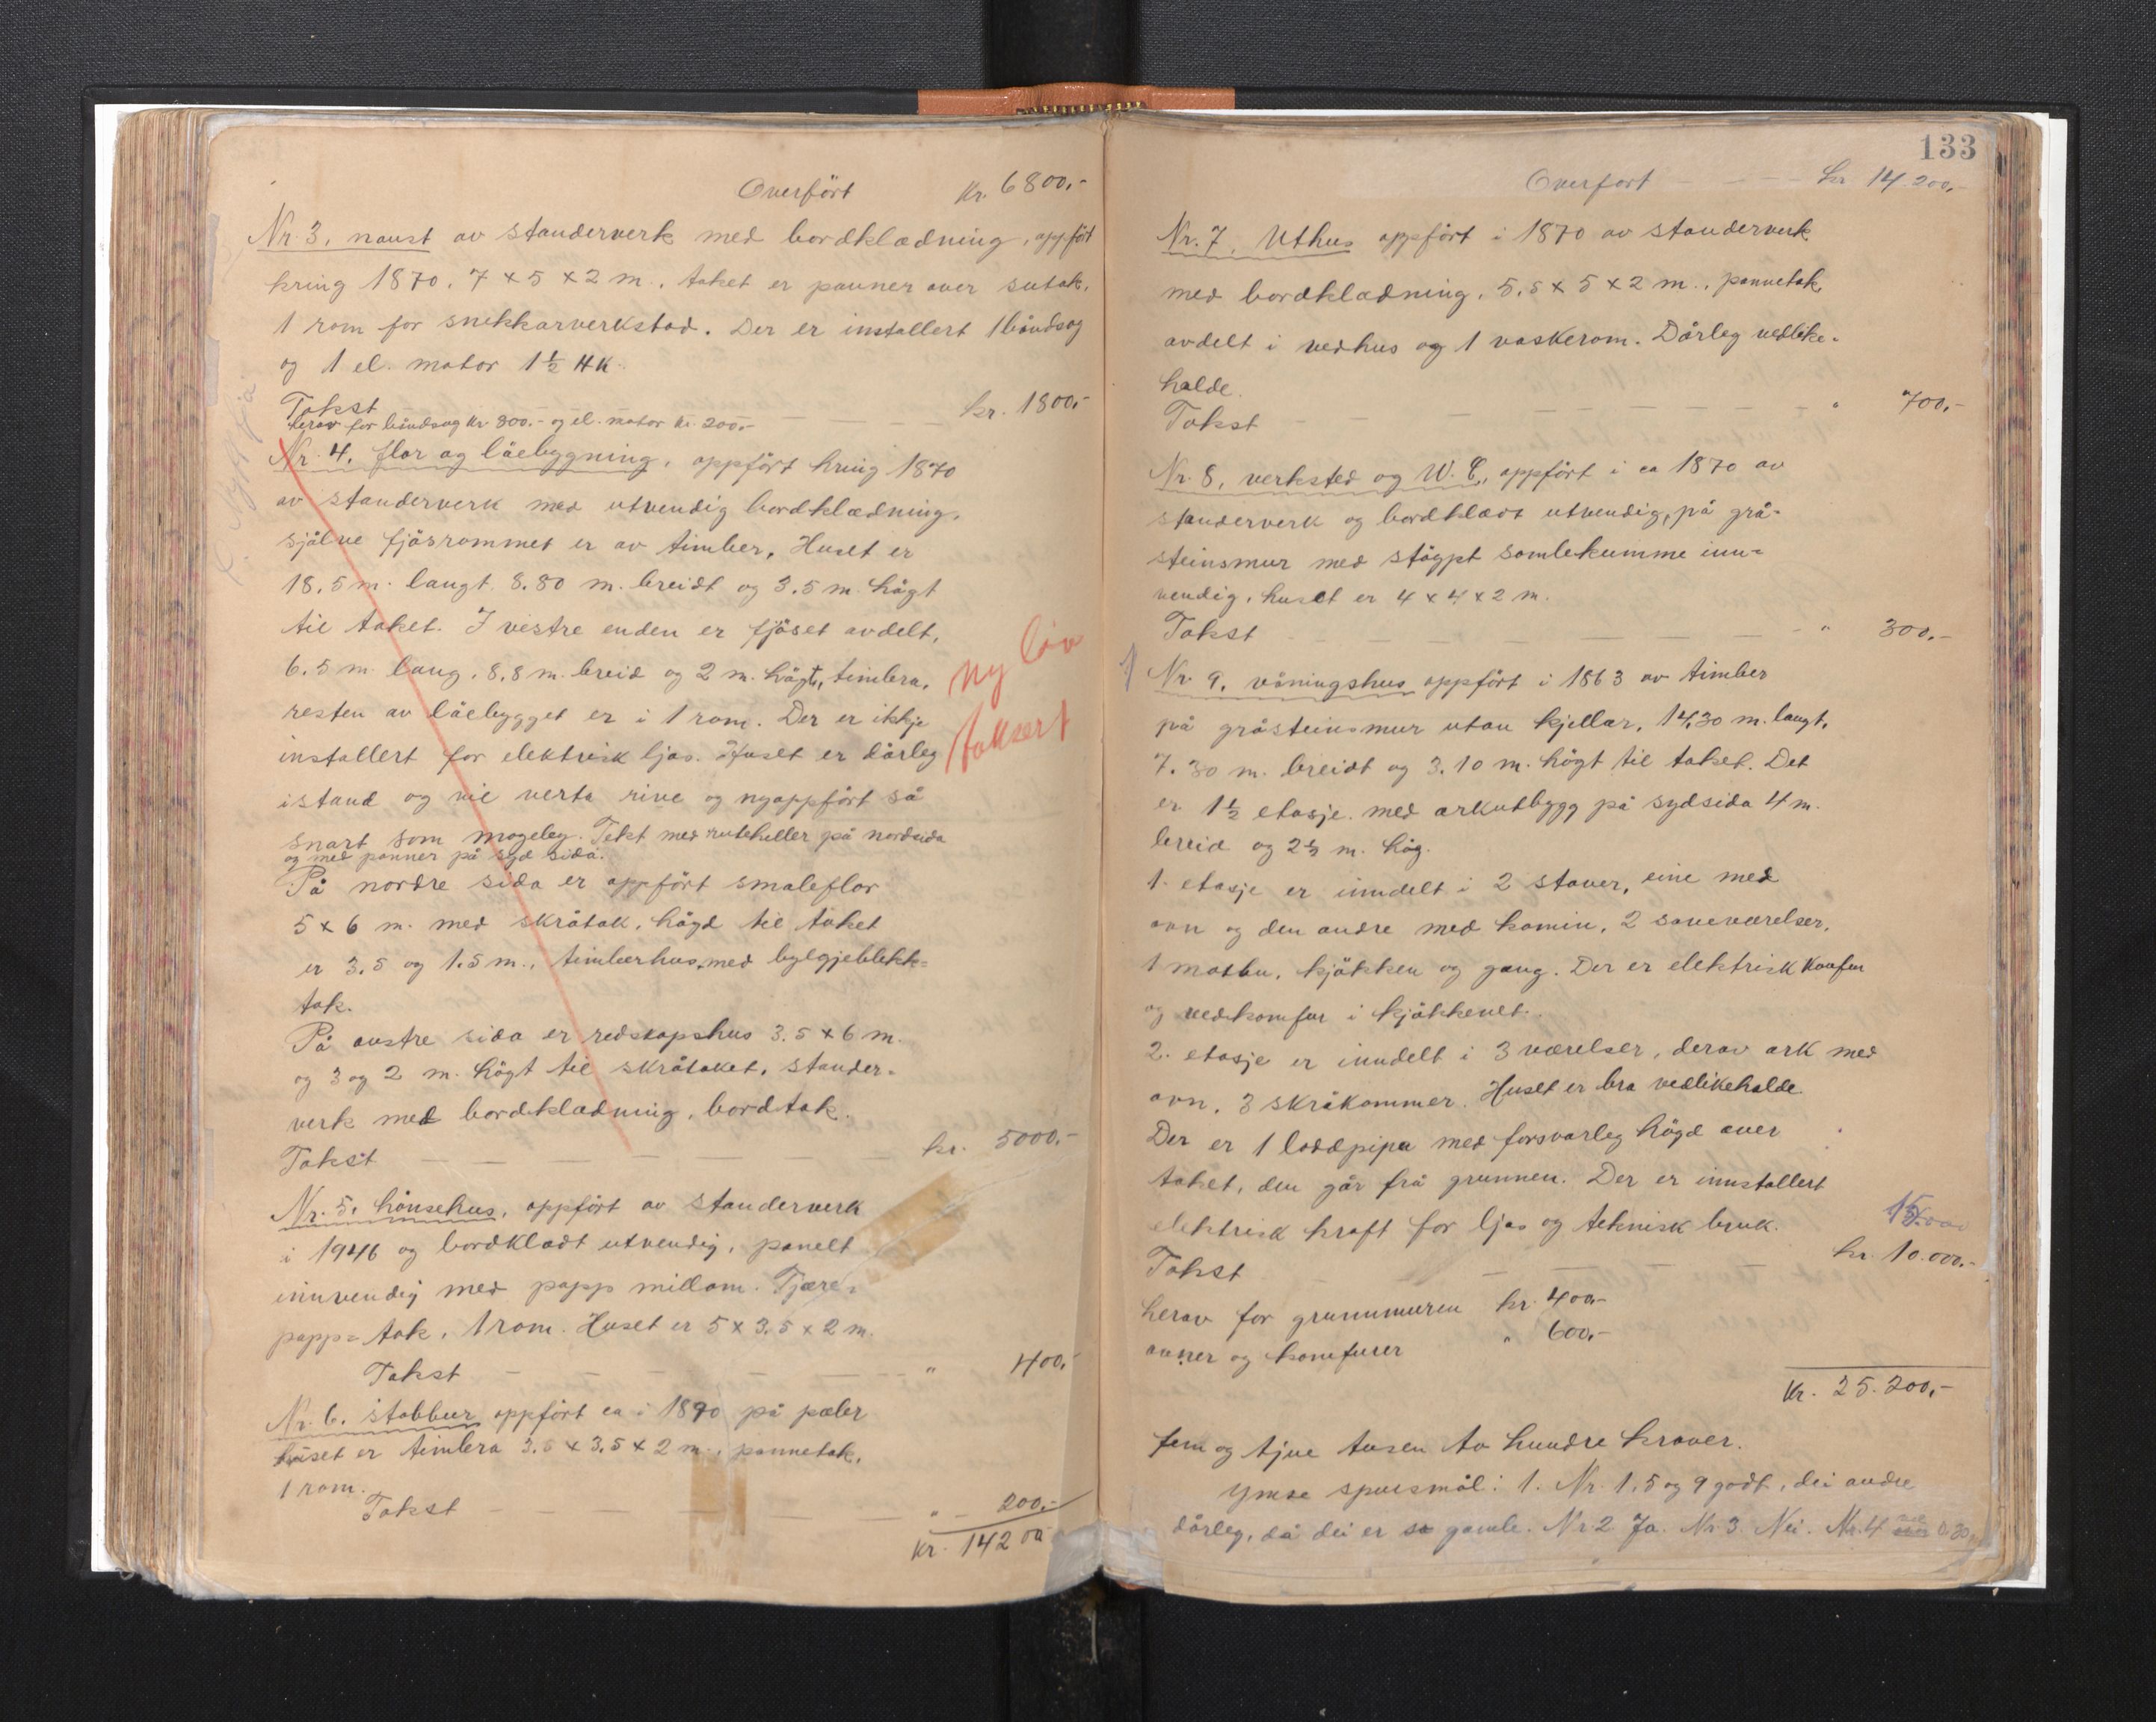 Overfört Kr. 6800,-
Nr. 3, naust av standerverk med bordklædning, appfört
kring 1870. 7 x 5 x 2 m., taket er panner over sutak,
1 rom for snekkarverkstad. Der er installert 1 båndsag
og 1 el. motor 1½ HK.
Takst kr. 1800,-
herav for båndsag kr. 300.- og el. motor kr. 200.-
Nr. 4, flor og låebygning, appfört kring 1870
av standerverk med utvendig bordklædning,
sjålve fjösrommet er av timber, Huset er
18.5 m. langt, 8.80 m. breidt og 3.5 m. högt
til taket. I vestre enden er fjöset avdelt,
6.5 m. lang, 8.8 m. breid og 2 m. högt, timbra,
resten av låebygget er i 1 rom. Der er ikkje
installert for elektrisk ljos. Huset er dårleg
istand og vil verta rive og nyappfört så
snart som mogeleg. Tekt med ruteheller på nordsida
og med panner på syd sida.
På nordre sida er appfört smaleflor
5 x 6 m. med skråtak, högd til taket
er 3.5 og 1.5 m., timberhus, med bylgjeblekk=
tak.
På austre sida er redskapshus 3.5 x 6 m.
og 3 og 2 m. högt til skråtaket, stander=
verk med bordklædning, bordtak.
Takst kr. 5000.-
ny löa
taksert
Nr. 5, hönsehus, appfört av standerverk
i 1946 og bordklædt utvendig, panelt
innvendig med papp millom. Tjære=
papp= tak, 1 rom. Huset er 5 x 3.5 x 2 m.
Takst " 400,-
Nr. 6, stabbur appfört ca i 1890 på pæler
huset er timbra 3.5 x 3.5 x 2 m., pannetak,
1 rom.
Takst " 200.-
Kr. 14200
133
Overfört kr 14.200,-
Nr. 7, Uthus appfört i 1870 av standerverk
med bordklædning, 5.5 x 5 x 2 m., pannetak,
avdelt i vedhus og 1 vaskerom. Dårleg vedlike=
halde.
Takst " 700,-
Nr. 8, verksted og W.C., appfört i ca 1870 av
standerverk og bordklædt utvendig, på grå=
steinsmur med stöypt samlekumme inn=
vendig, huset er 4 x 4 x 2 m.
Takst " 300,-
Nr. 9, våningshus appfört i 1863 av timber
på gråsteinsmur utan kjellar, 14,30 m. langt,
7.30 m. breidt og 3.10 m. högt til taket. Det
er 1½ etasje med arkutbygg på sydsida 4 m.
breid og 2½ m. hög.
1. etasje er inndelt i 2 stover, eine med
ovn og den andre med kamin, 2 soveværelser,
1 matbu, kjökken og gang. Der er elektrisk komfur
og vedkomfur i kjökkenet.
2. etasje er inndelt i 3 værelser, derav ark med
ovn, 3 skråkammer. Huset er bra vedlikehalde.
Der er 1 loddpipa med forsvarleg högd over
taket, den går frå grunnen. Der er innstallert
elektrisk kraft for ljos og teknisk bruk. 15.000
Takst kr. 10.000.-
herav for grunnmuren kr. 400.-
ovner og komfurer " 600.-
Kr. 25.200,-
fem og tjue tusen to hundre kroner.
Ymse spursmål: 1. Nr. 1, 5 og 9 godt, dei andre
dårleg, då dei er so gamle. Nr 2 Ja. Nr 3. Nei. Nr. 4